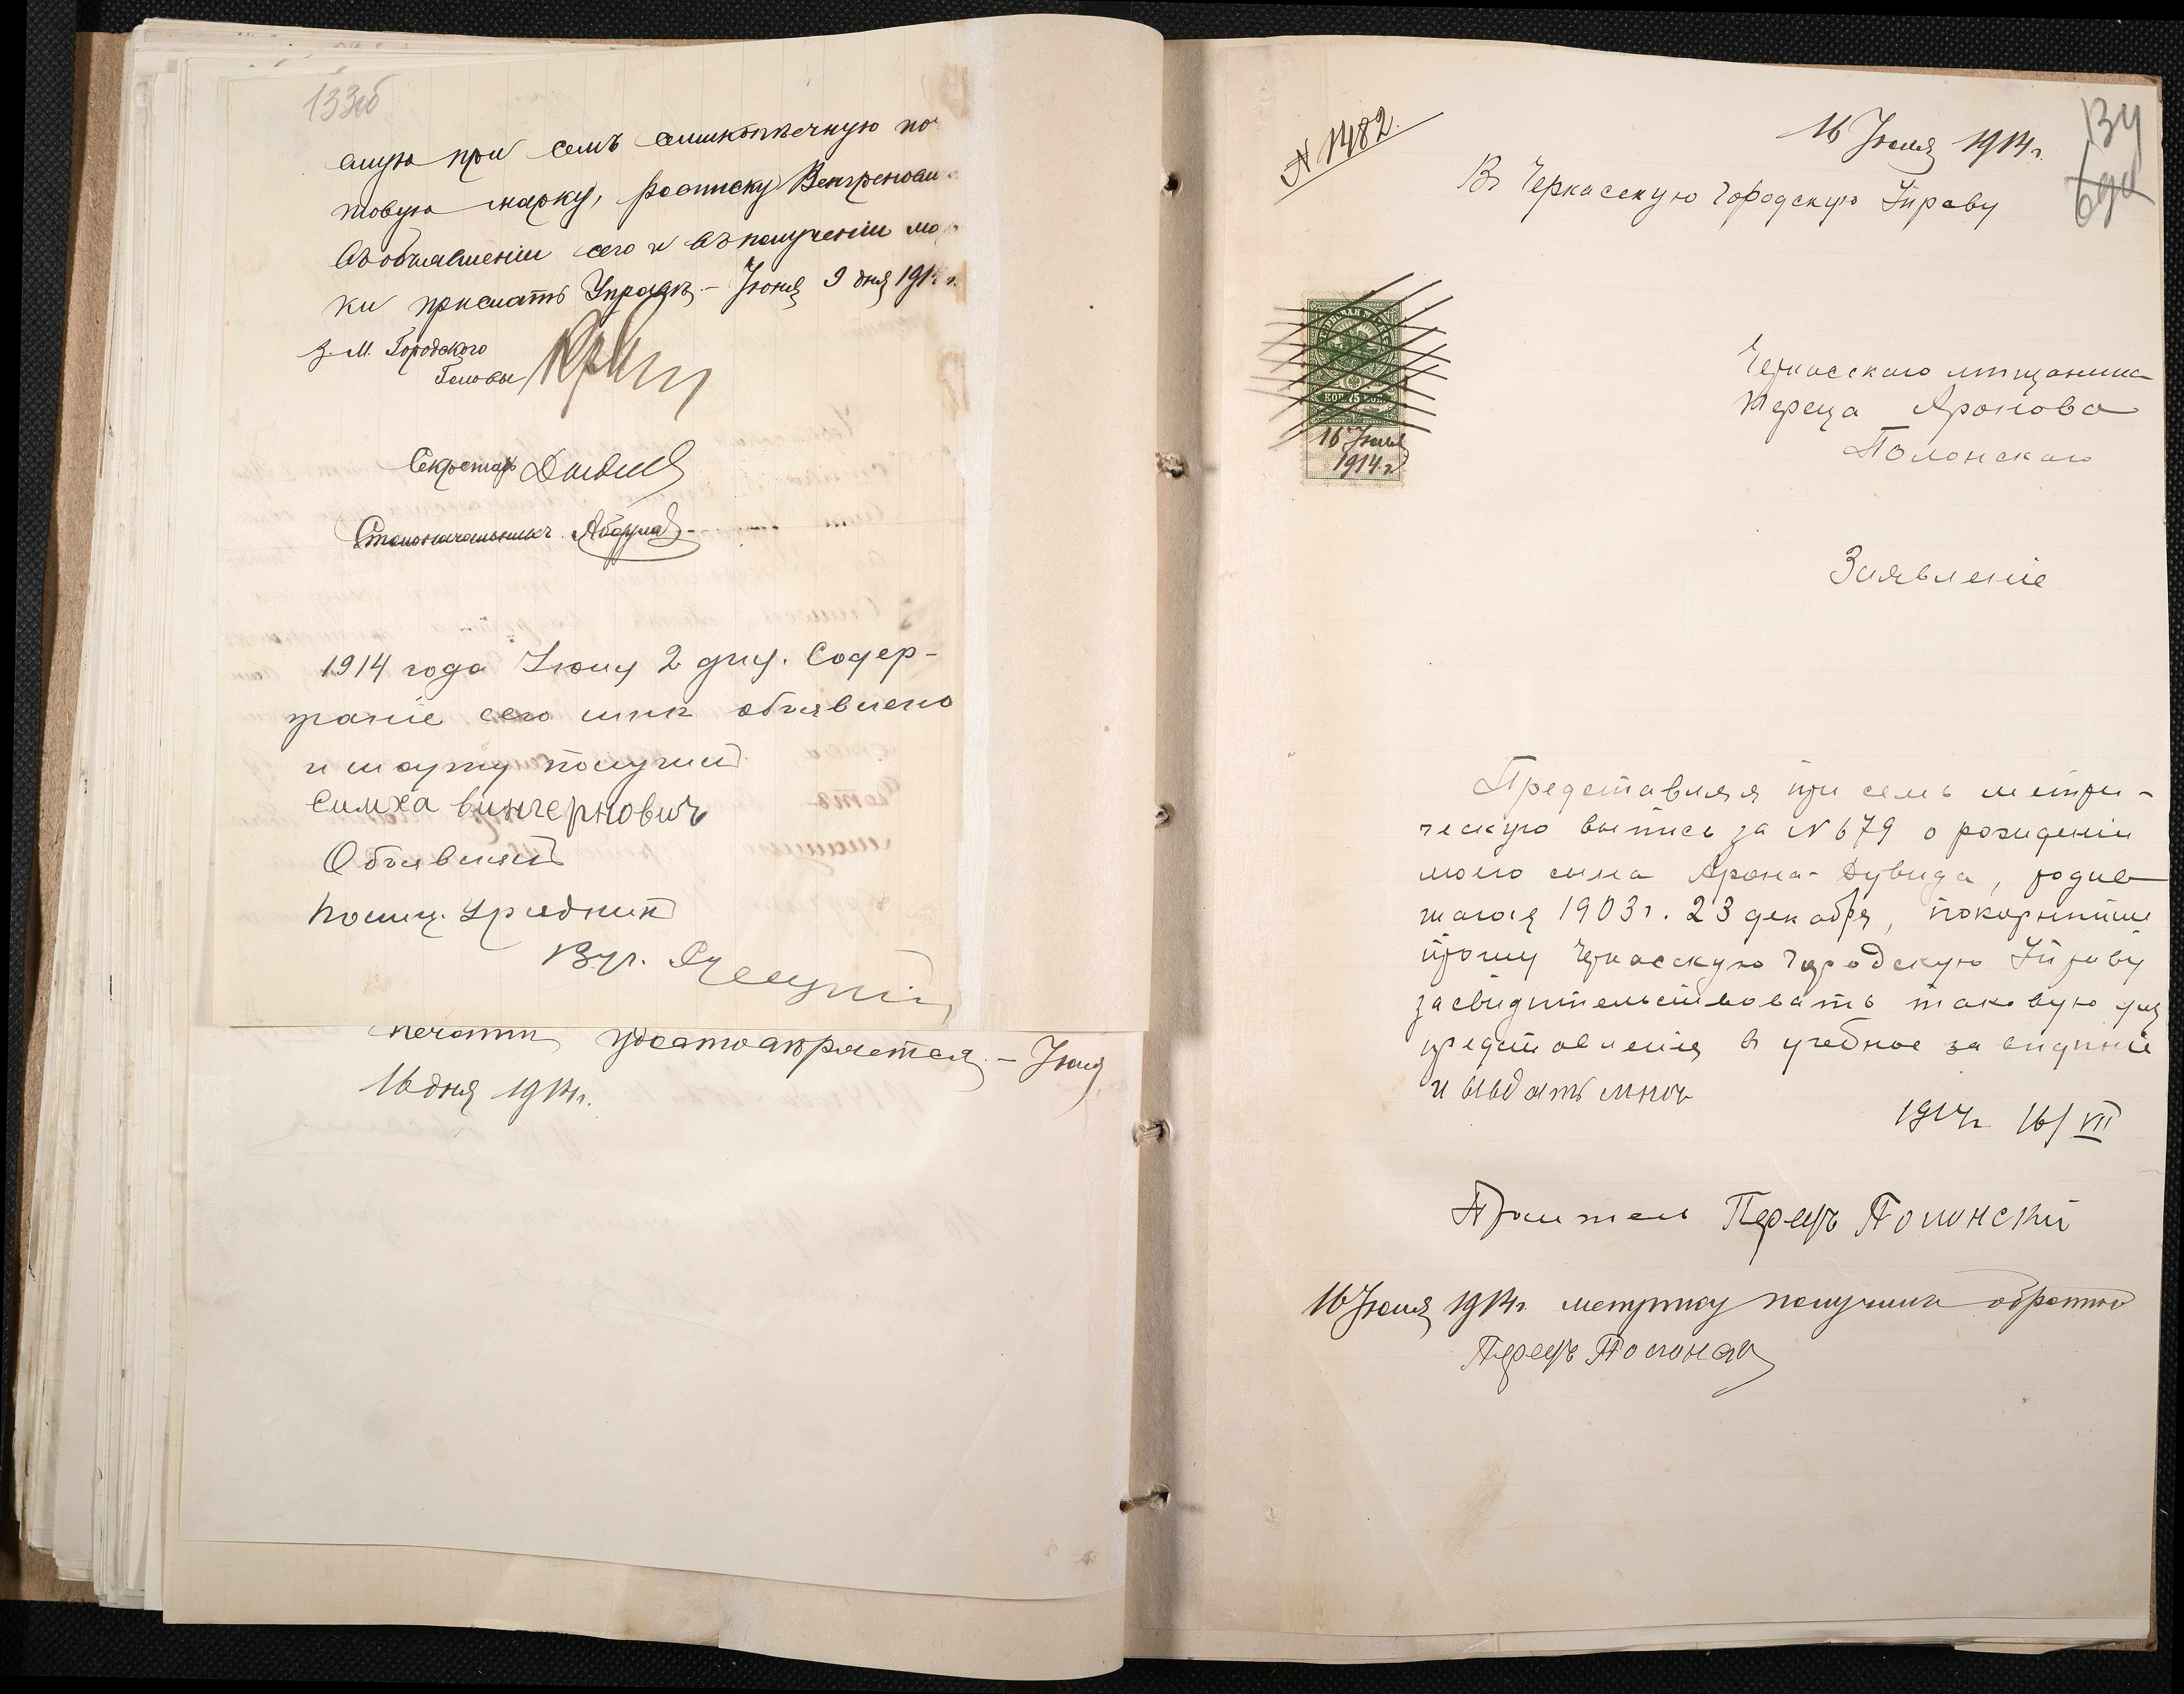 133об
при семъ семикопѣечную по
товую марку, росписку
въ объявленіи сего и въ полученіи мар
ки прислать Управѣ. – Іюня 9 дня 191 г.
З. М. Городского
Головы
Секретарь
Столоначальникъ
1914 года Іюля 2 дня. Содер-
жаніе сего мнѣ объявлено
и марку получилъ
Симха Винчерновичъ
Объявилъ
Полиц. Урядникъ
печати удостовѣряется. – Іюля
16 дня 1914 г.
134
N 1482.
16 Іюля 1914 г.
Въ Черкасскую Городскую Управу
ГЕРБОВАЯ МАРКА
КОП. 75 КОП.
16 Іюля
1914 г.
Черкасскаго мѣщанина
Переца Аронова
Полонскаго
Заявленіе
Представляя при семъ метри-
ческую выпись за N 679 о рожденіи
моего сына Арона-Дувида, родив
шагося 1903 г. 23 декабря, покорнѣйше
прошу Черкасскую Городскую Управу
засвидѣтельствовать таковую для
представленія въ учебное заведеніе
и выдать мнѣ
1914 г. 16/VII
Проситель Перецъ Полонскій
16 Іюля 1914 г. метрику получилъ обратно
Перецъ Полонскій